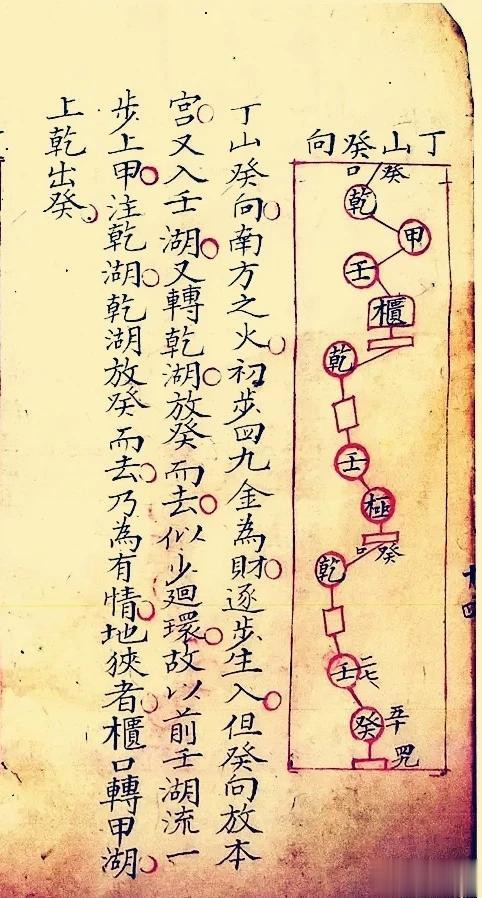 丁山癸向
口癸
乾
甲
壬
櫃
乾
壬
極
口癸
乾
壬二七
癸五十
四九
丁山癸向。南方之火。初步四九金為財。逐步生入。但癸向放本
宮。又入壬湖。又轉乾湖。放癸而去。似少迴環。故以前壬湖流一
步上甲。注乾湖。乾湖放癸而去。乃為有情。地狹者。櫃口轉甲湖。
上乾出癸。